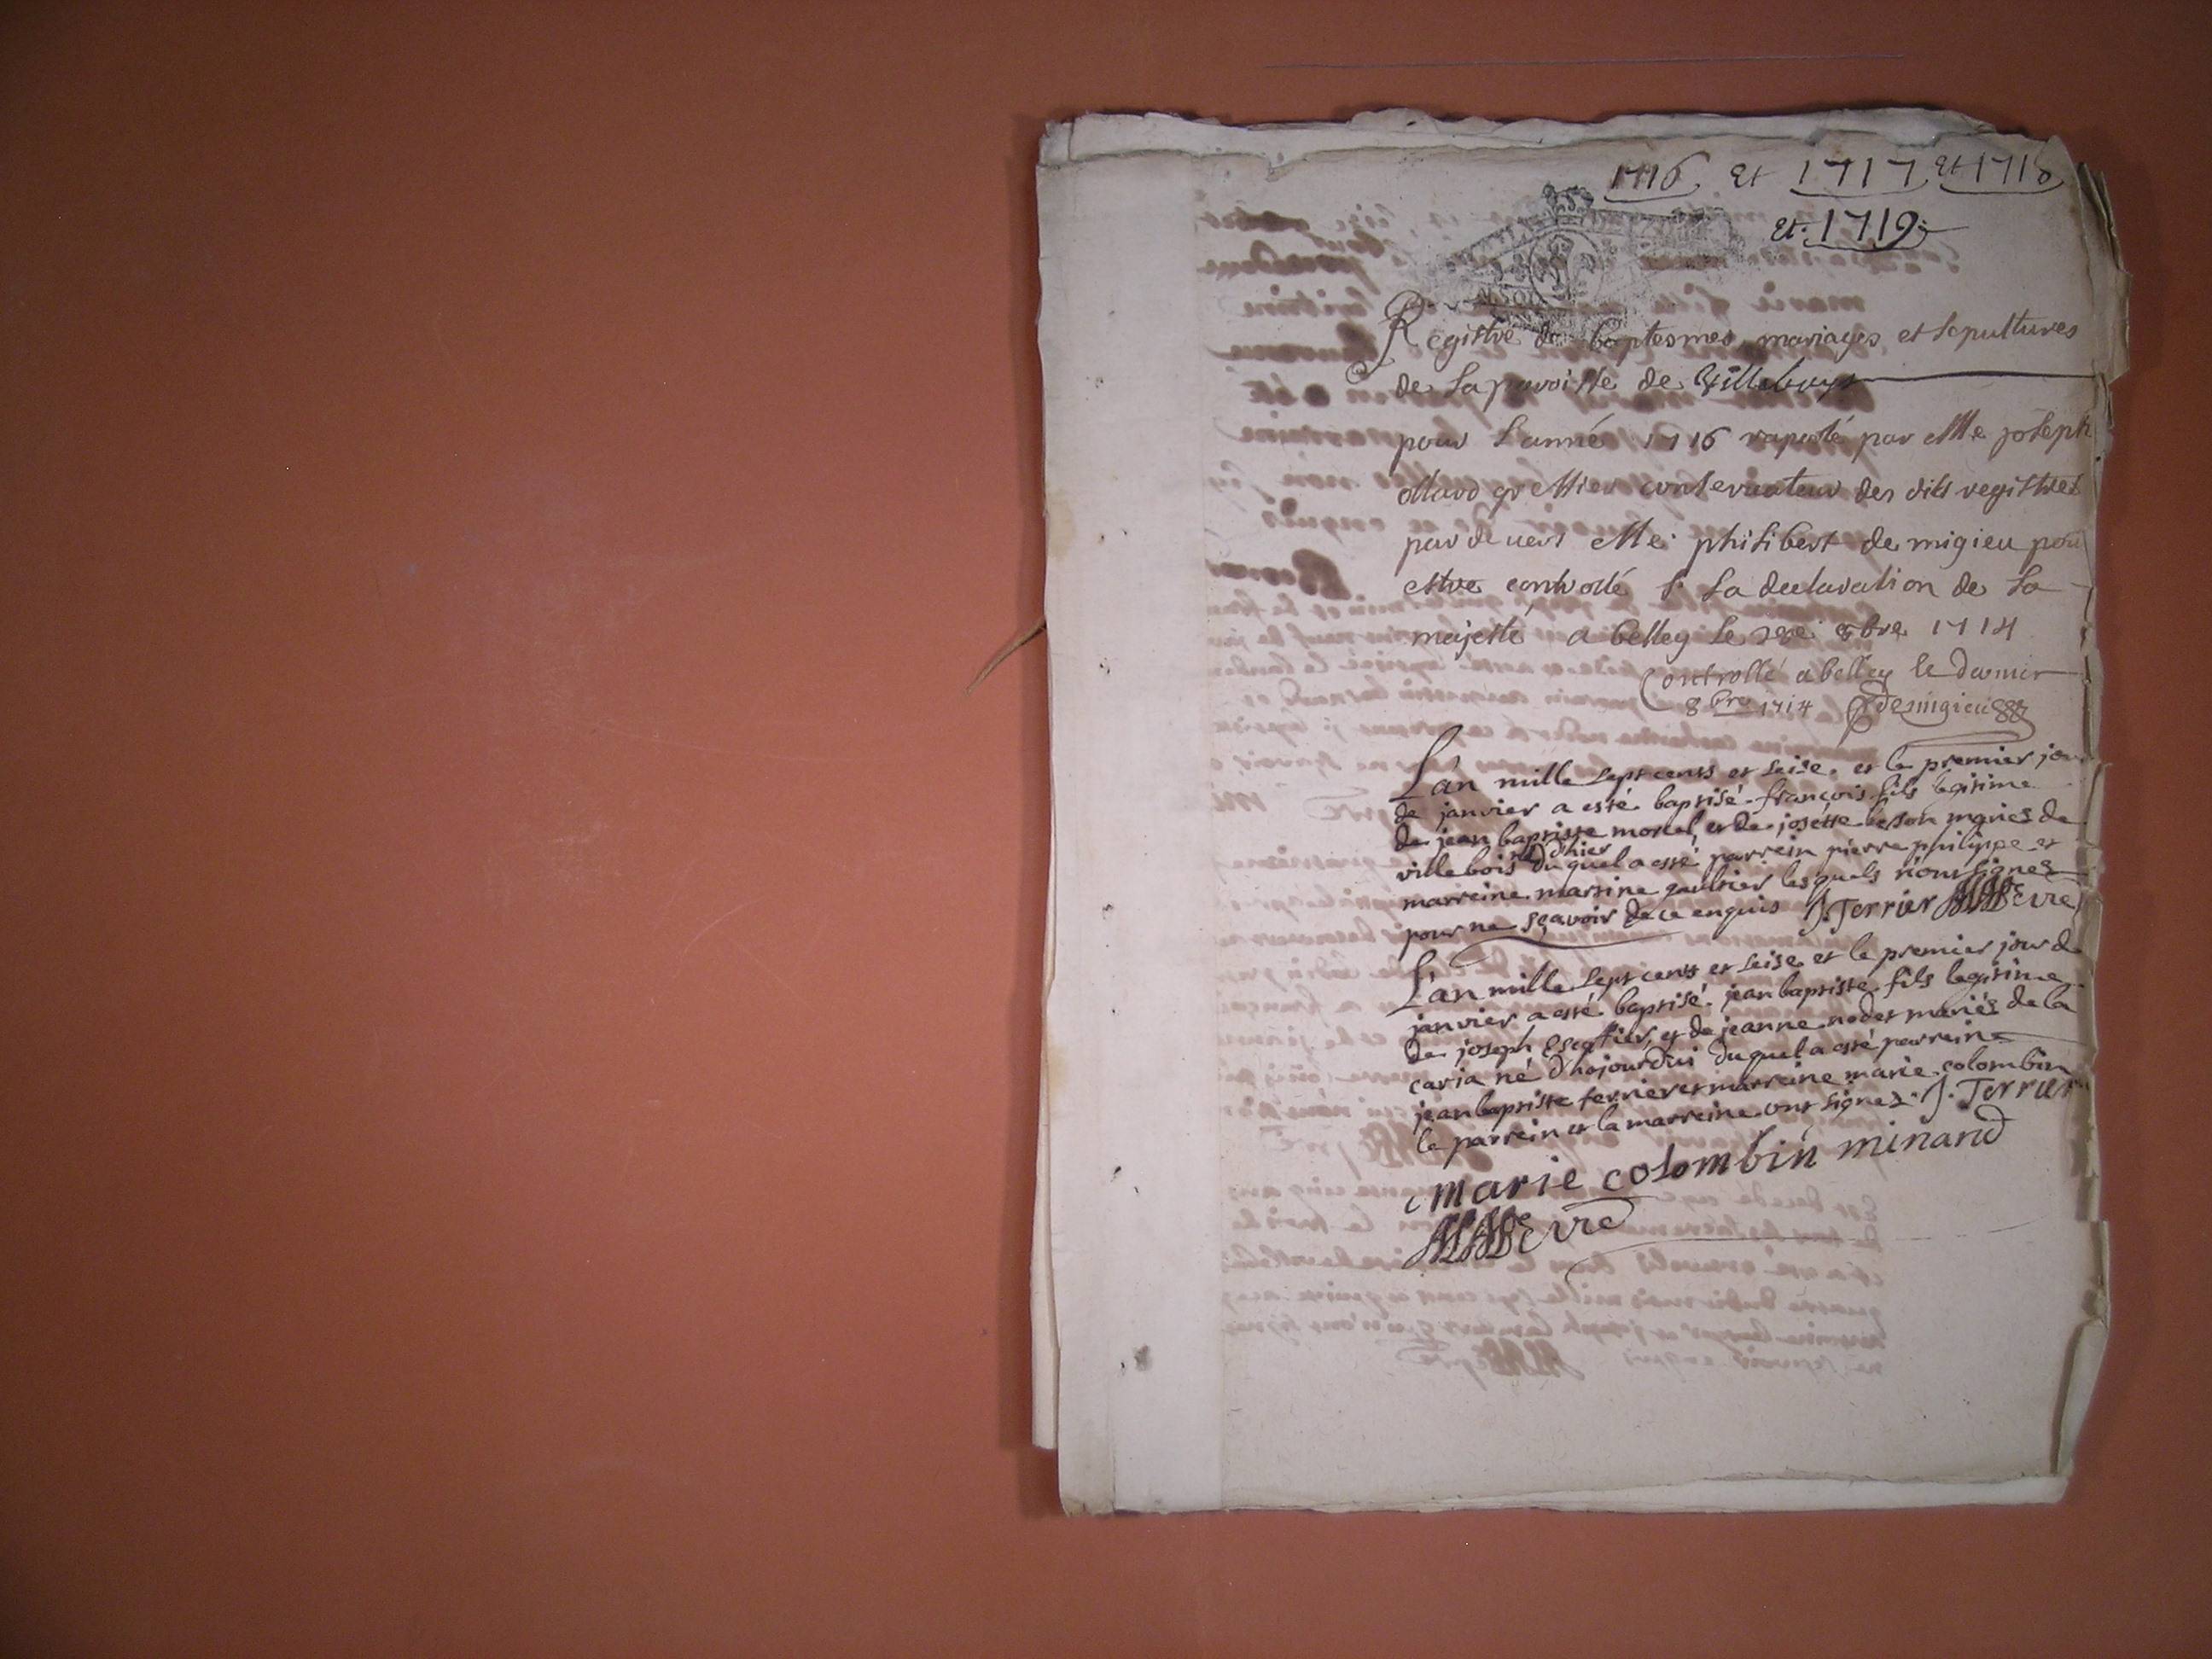 1716 et 1717 et 1718
et 1719
Registre de baptesmes, mariages et sepultures
de la paroisse de Villeboys
pour l'année 1716 raporté par Me joseph
greffier conservateur des dits registres
par devers Me philibert de migieu pou
estre controllé s. la declaration de sa
majesté a belley le 8bre 1714
Controllé a belley le dernier
8bre 1714 Demigieu
L'an mille sept cents et seise et le premier jou
de janvier a esté baptisé françois fils legitime
de jean baptiste morel et de josette besson mariés de
né d'hier
villebois duquel a esté parrein pierre philippe et
marreine martine gaultier lesquels n'ont signez
pour ne sçavoir de ce enquis J. Terrier
L'an mille sept cents et seise et le premier jour de
janvier a esté baptisé jean baptiste fils legitime
de joseph et de jeanne nodet mariés de la
caria né d'hojourdui duquel a esté parrein
jean baptiste terrier et marreine marie colombin
le parrein et la marreine ont signez. J. Terrier
marie colombin minand